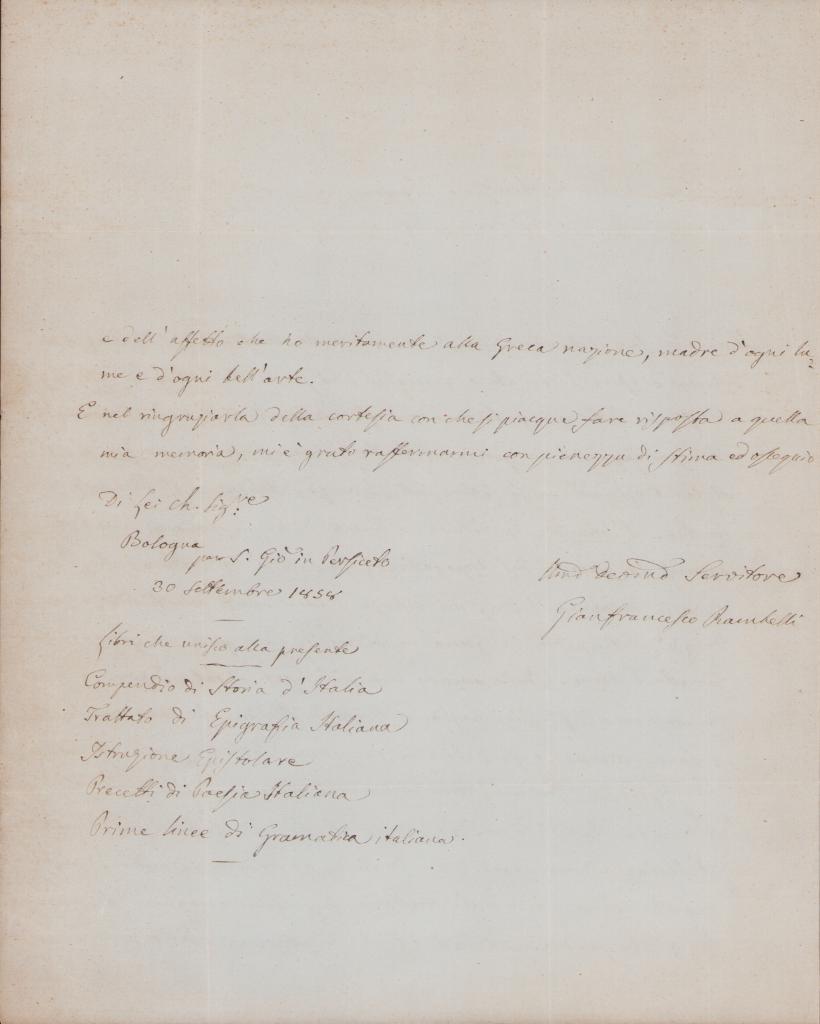 e dell'affetto che ho meritamente alla Greca nazione, madre d'ogni lu=
me e d'ogni bell'arte.
E nel ringraziarla della cortesia con che si piacque fare risposta a quella
mia memoria, mi è grato raffermarmi con pienezza di stima ed ossequio
Di Lei ch. Sig.re
Bologna
per S. Giō in Persiceto
30 Settembre 1858
Servitore
Gianfrancesco Rambelli
Libri che unisco alla presente
Compendio di Storia d'Italia
Trattato di Epigrafia Italiana
Istruzione Epistolare
Precetti di Poesia Italiana
Prime linee di Gramatica italiana.